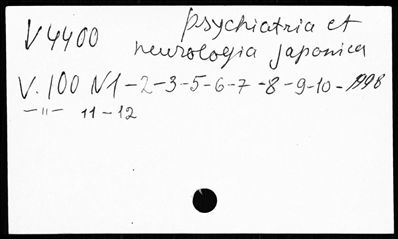 V 4400 psychiatria et
neurologia japonica
V. 100 N1-2-3-5-6-7-8-9-10-1998
-"- 11-12